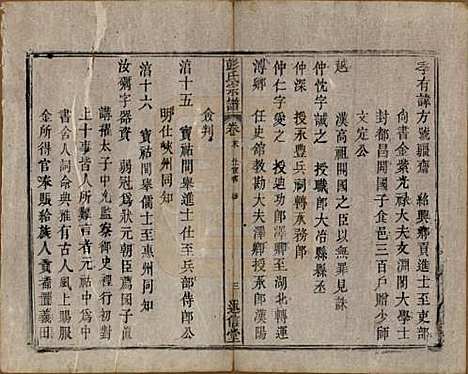 李有諱方號䦨齋 紹興鄉貢進士至吏部
尚書金紫光祿大夫文淵閣大學士
封都昌開國子食邑三百戶贈少師
文定公
越 漢高祖開國之臣以無罪見誅
仲忱字誠之 授職郎大冶縣縣丞
仲承 授承豐兵祠轉承務郎
仲仁字愛之 授迪功郎澤卿至湖北轉運
溥卿 任史館教勘大夫澤卿授承郎漢陽
僉判
彭氏宗譜 卷末 三 述信堂
涪十五 寶祐間舉進士仕至兵部侍郎公
明仕峽州同知
涪十六 寶祐間舉儒士至惠州同知
汝礪字器資 弱冠爲狀元朝臣薦國子直
講擢太子中允監察御史裡行初對
上十事皆人所難言者元祐中爲中
書舍人詞命典雅有古人風上賜服
金所得官奉賑給族人貢齋置義田